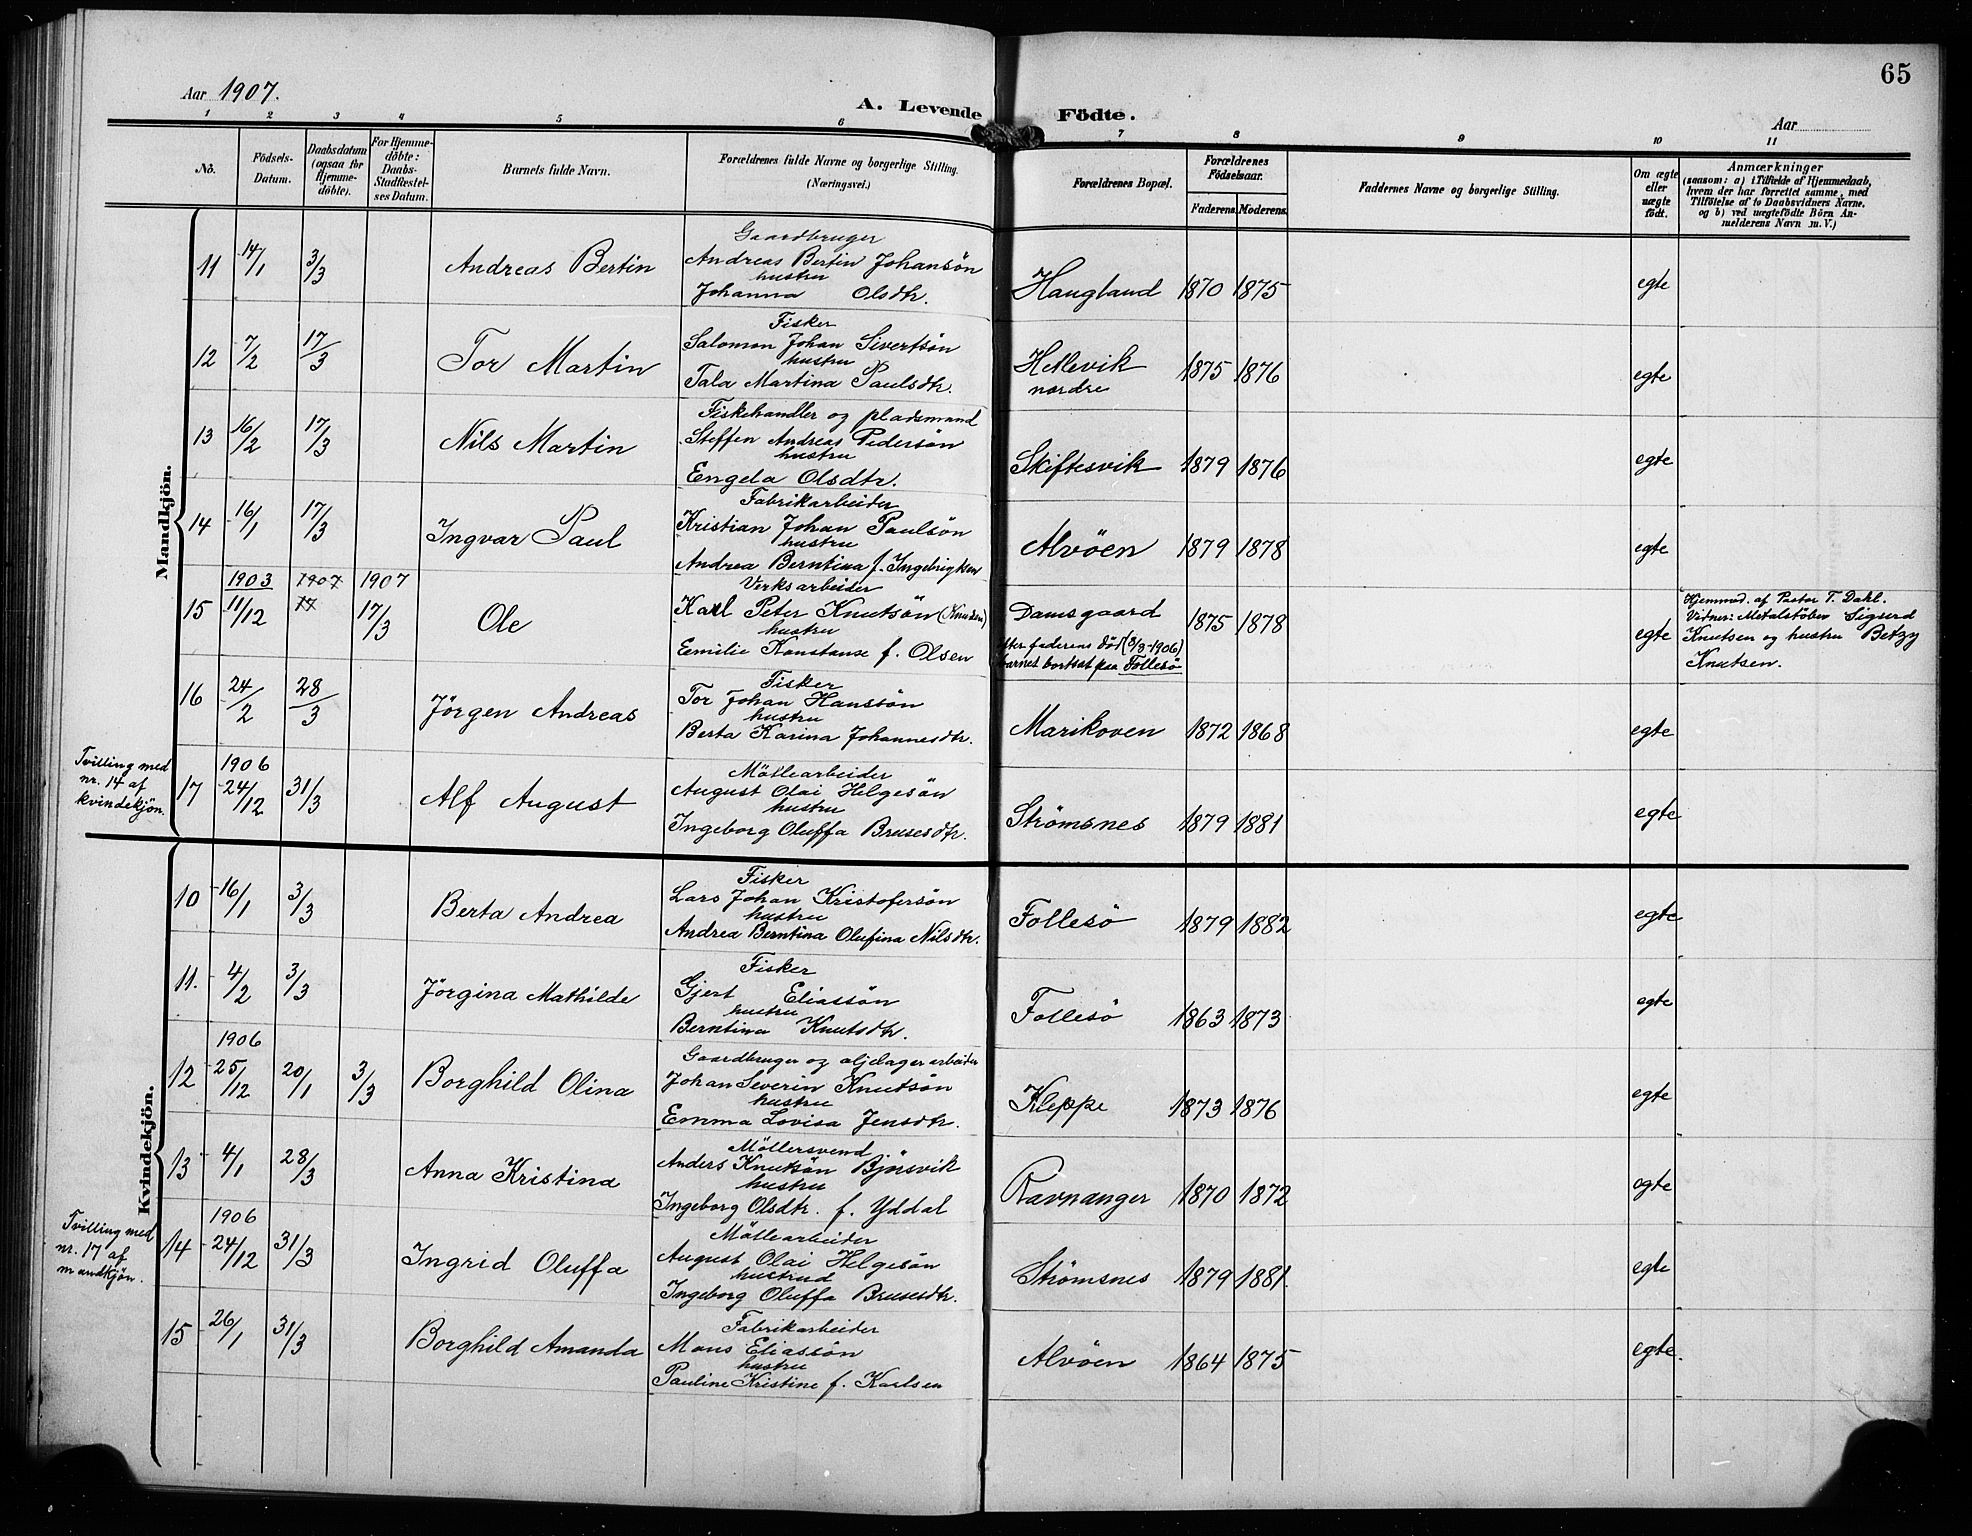 65
Aar 1907.
A. Levende Födte.
Aar
1 2 3 4 5 6 7 8 9 10 11
No.
Födsels-
Datum.
Daabsdatum
(ogsaa for
Hjemme-
döbte).
For Hjemme-
döbte:
Daabs-
Stadfæstel-
ses Datum.
Barnets fulde Navn.
Forældrenes fulde Navne og borgerlige Stilling.
(Næringsvei.)
Forældrenes Bopæl.
Forældrenes
Födselsaar.
Faderens. Moderens.
Faddernes Navne og borgerlige Stilling.
Om ægte
eller
uægte
födt.
Anmærkninger
(saasom: a) i Tilfælde af Hjemmedaab,
hvem der har forrettet samme, med
Tilföielse af to Daabsvidners Navne.
og b) ved uægtefödte Börn An-
melderens Navn m. V.)
Mandkjön.
11 14/1 3/3 Andreas Bertin
Gaardbruger
Andreas Bertin Johansön
hustru
Johanna Olsdtr.
Haugland 1870 1875 egte
12 7/2 17/3 Tor Martin
Fisker
Salomon Johan Sivertsön
hustru
Tala Martina Paulsdtr.
Hetlevik
nordre
1875 1876 egte
13 16/2 17/3 Nils Martin
Fiskehandler og pladsmand
Steffen Andreas Pedersön
hustru
Engela Olsdtr.
Skiftesvik 1879 1876 egte
14 16/1 17/3 Ingvar Paul
Fabrikarbeider
Kristian Johan Paulsön
hustru
Andrea Berntina f. Ingebrigtsen
Alvöen 1879 1878 egte
1903 1907 1907
15 11/12 17 17/3 Ole
Verksarbeider
Karl Peter Knutsön (Knudsen)
hustru
Emilie Konstanse f. Olsen
Damsgaard
efter faderens död (8/3-1906)
barnet bortsat paa Follesö
1875 1878 egte
Hjemmed. af Pastor T. Dahl.
Vidner: Metalstöber Sigurd
Knutsen og hustru Betzy
Knutsen.
16 24/2 28/3 Jörgen Andreas
Fisker
Tor Johan Hanssön
hustru
Berta Karina Johannesdtr.
Marikoven 1872 1868 egte
Tvilling med
nr. 14 af
kvindekjön.
1906
17 24/12 31/3 Alf August
Möllearbeider
August Olai Helgesön
hustru
Ingeborg Oluffa Brusesdtr.
Strömsnes 1879 1881 egte
Kvindekjön.
10 16/1 3/3 Berta Andrea
Fisker
Lars Johan Kristofersön
hustru
Andrea Berntina Olufina Nilsdtr.
Follesö 1879 1882 egte
11. 4/2 3/3 Jörgina Mathilde
Fisker
Gjert Eliassön
hustru
Berntina Knutsdtr.
Follesö 1863 1873 egte
1906
12 25/12 20/1 3/3 Borghild Olina
Gaardbruger og oljelagerarbeider
Johan Severin Knutsön
hustru
Emma Lovisa Jensdtr.
Kleppe 1873 1876 egte
13 4/1 28/3 Anna Kristina
Möllersvend
Anders Knutsön Björsvik
hustru
Ingeborg Olsdtr. f. Yddal
Ravnanger 1870 1872 egte
Tvilling med
nr. 17 af
mandkjön.
1906
14 24/12 31/3 Ingrid Oluffa
Möllearbeider
August Olai Helgesön
hustrud
Ingeborg Oluffa Brusesdtr.
Strömsnes 1879 1881. egte
15 26/1 31/3 Borghild Amanda
Fabrikarbeider
Mons Eliassön
hustru
Pauline Kristine f. Karlsen
Alvöen 1864 1875 egte.